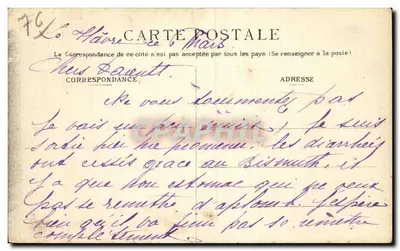 76
CARTE POSTALE
Le Hâvre ce 6 Mars
La Correspondance de ce côté n'est pas acceptée par tous les pays (Se renseigner à la poste)
Chers
CORRESPONDANCE
ADRESSE
Ne vous tourmentez pas
Je vais un peu mieux, je suis
sortie hier me promener, les diarrhées
ont cessés grace au Bismuth, il
y a que mon estomac qui ne veux
pas se remettre d'aplomb. J'espère
bien qu'il va finir pas se remettre
complètement.